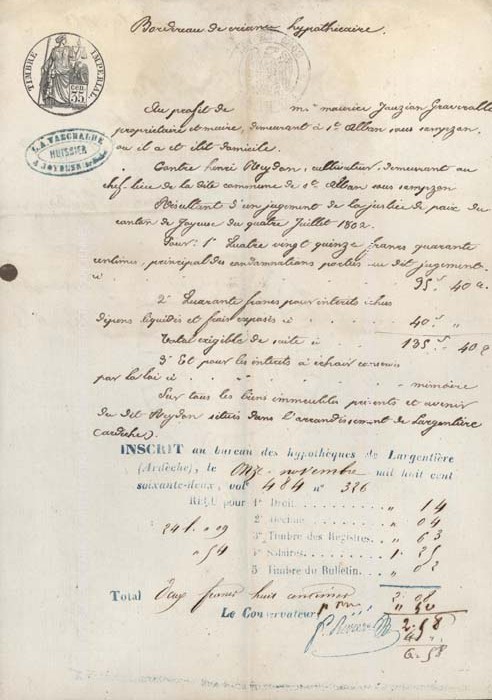 Bordereau de créance hypothécaire.
TIMBRE IMPERIAL
35 CEN
LAVASCHALDE
HUISSIER
A JOYEUSE
Au profit de mr maurice Jauzion
propriétaire et maire, demeurant à St Alban sous sampzon,
ou il a élu domicile.
Contre henri Neydon, cultivateur, demeurant au
chef lieu de la dite commune de St Alban sous sampzon
Résultant d'un jugement de la justice de paix du
canton de Joyeuse du quatre Juillet 1862.
Pour: 1° Quatre vingt quinze francs quarante
centimes, principal des condamnations portées au dit jugement.
ci 95f 40c
2° Quarante francs pour interets échus
dépens liquidés et frais exposés ci 40f "
Total exigible de suite ci 135f 40c
3° Et pour les interets à échoir conservés
par la loi ci mémoire
Sur tous les biens immeubles présents et avenir
du dit Neydon situés dans l'arrondissement de Largentière
(ardèche).
INSCRIT au bureau des hypothèques de Largentière
(Ardèche), le onze novembre mil huit cent
soixante-deux, vol 484 n° 326
REÇU pour 1° Droit " 14
2° Décime " 04
241. " 09 3° Timbre des Registres " 63
" 54 4° Salaires 1. 25
5 Timbre du Bulletin " 02
Total Deux francs huit centimes 2. 08
Le Conservateur " 50
2. 58
6. 58